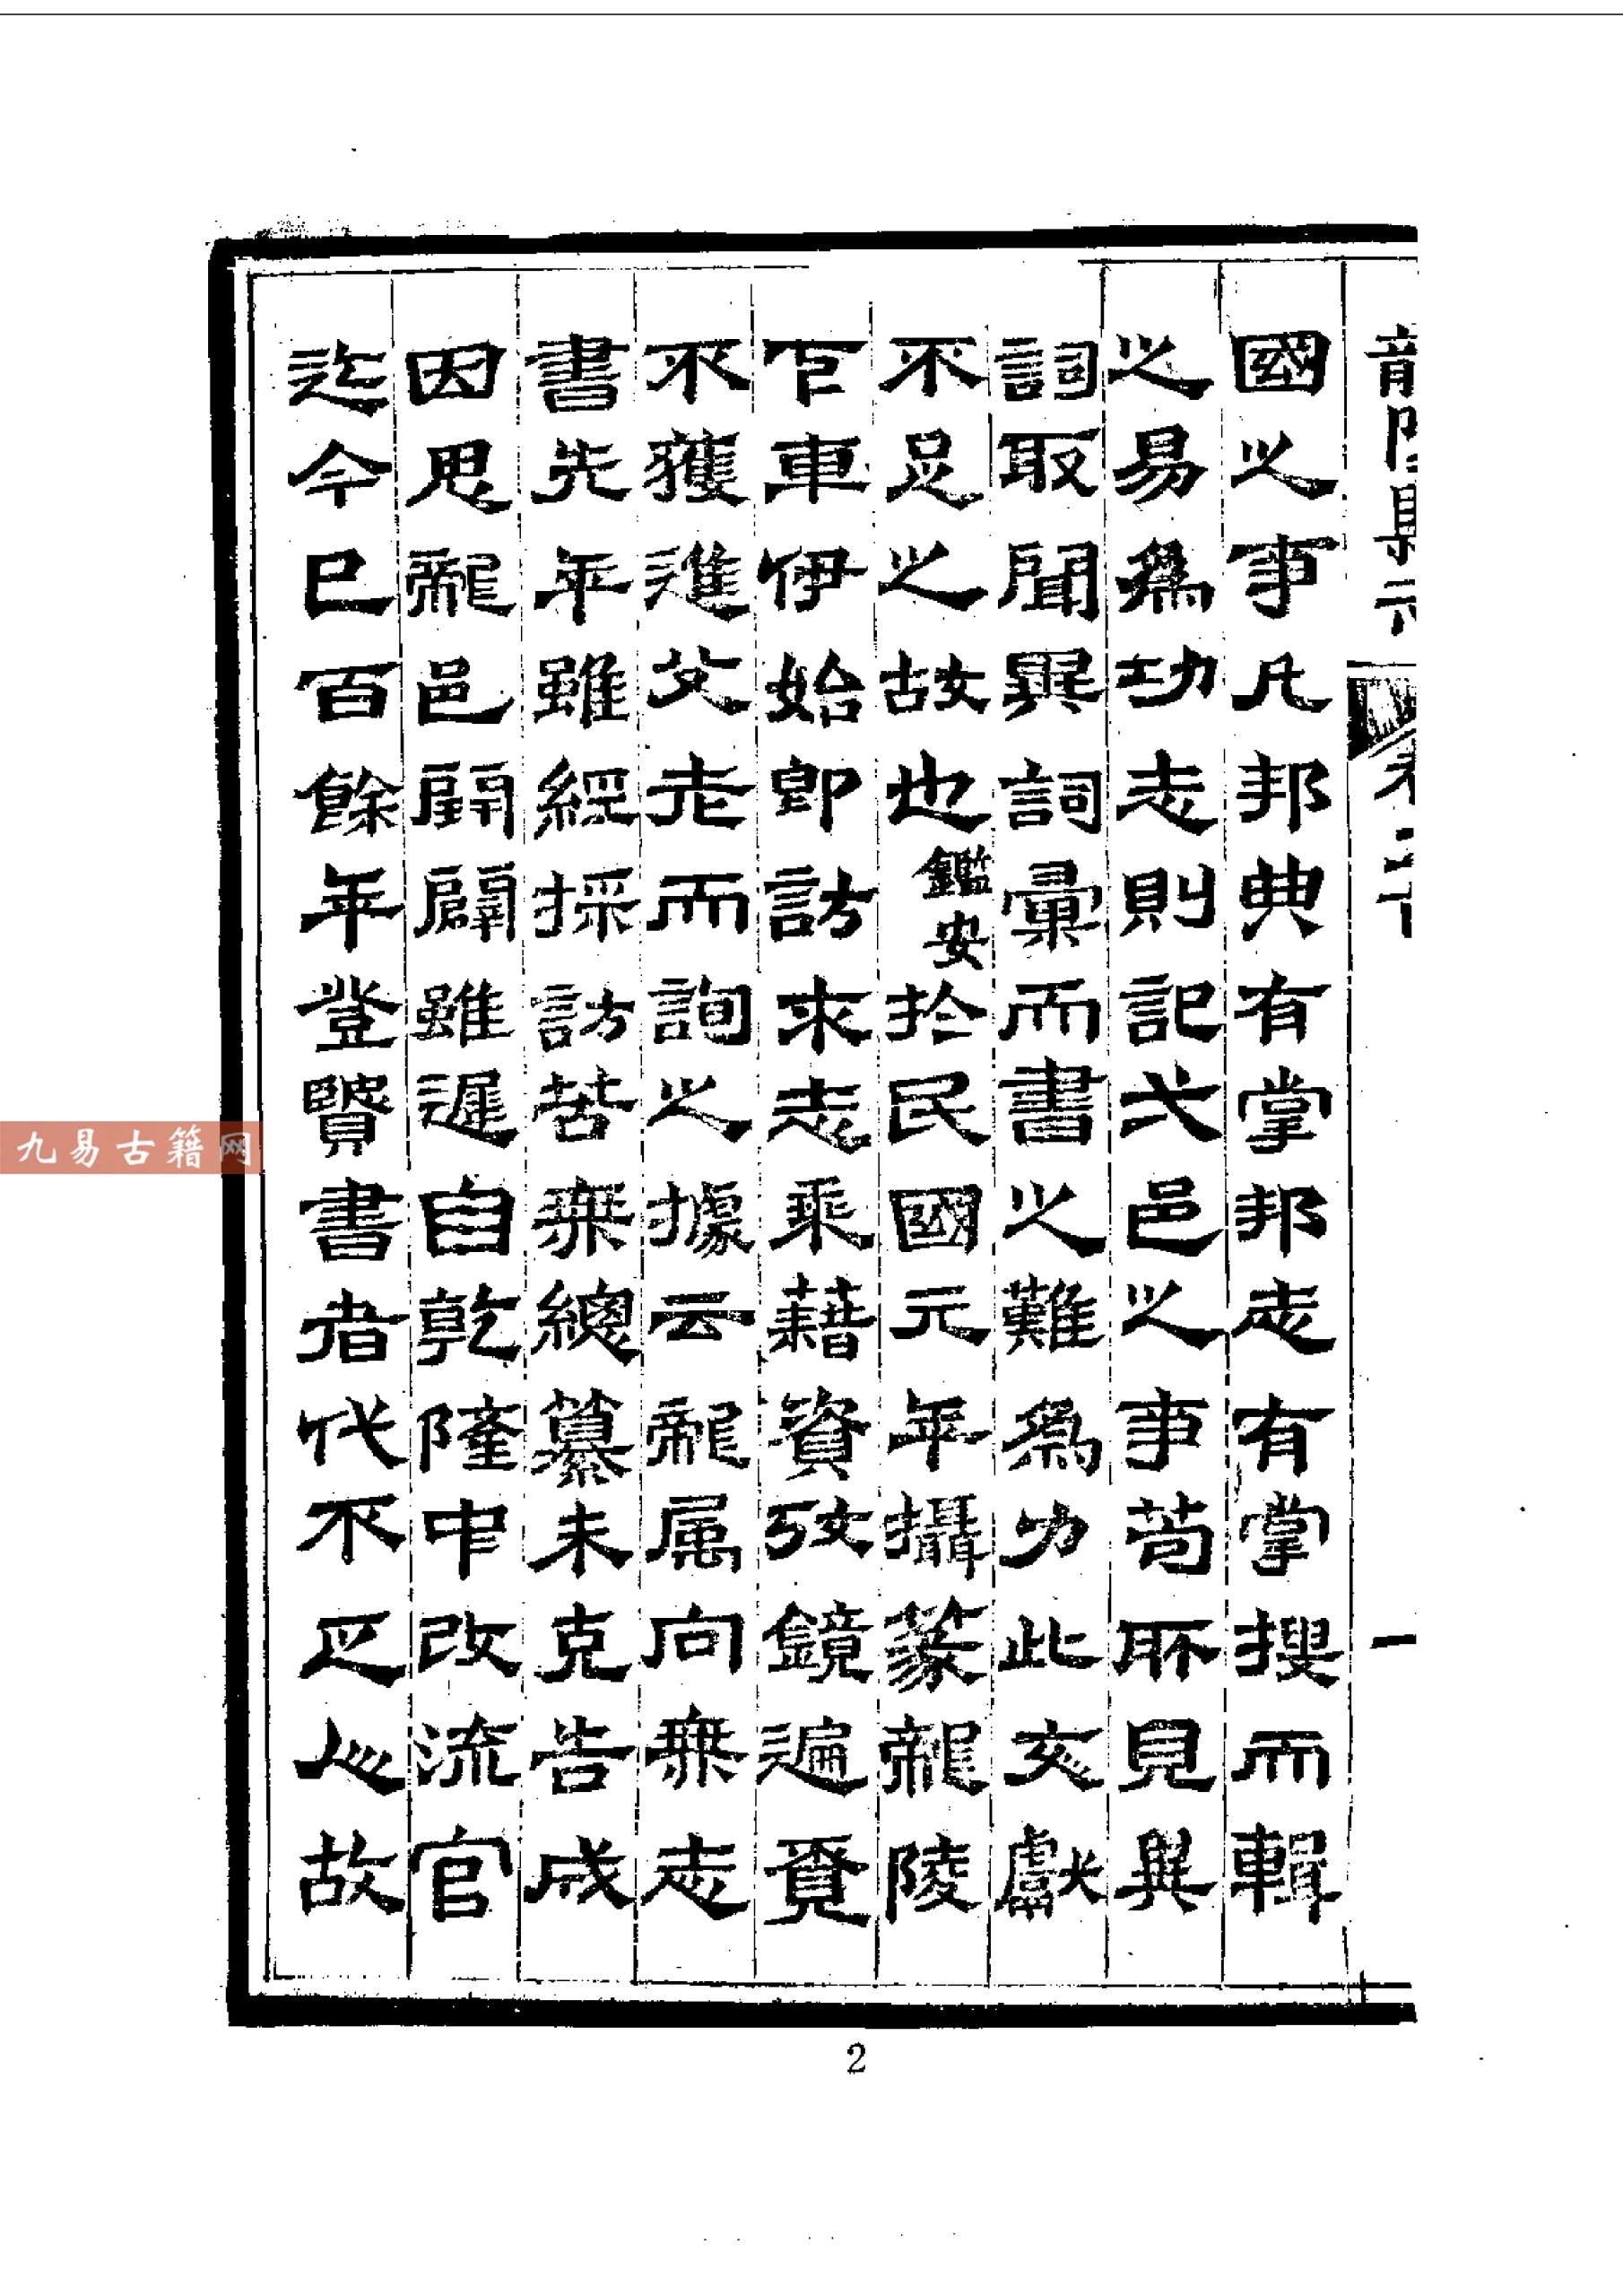 國之事凡邦典有掌邦志有掌搜而輯
之易爲功志則記弌邑之事苟所見異
詞取聞異詞彙而書之難爲力此文獻
不足之故也鑑安於民國元年攝篆龍陵
下車伊始即訪求志乘藉資攷鏡遍覓
不獲進父老而詢之據云龍属向無志
書先年雖經採訪苦無總纂未克告成
因思龍邑開闢雖遲自乾隆中改流官
迄今已百餘年登賢書者代不乏人故
龍陵縣志
一
2
九易古籍网